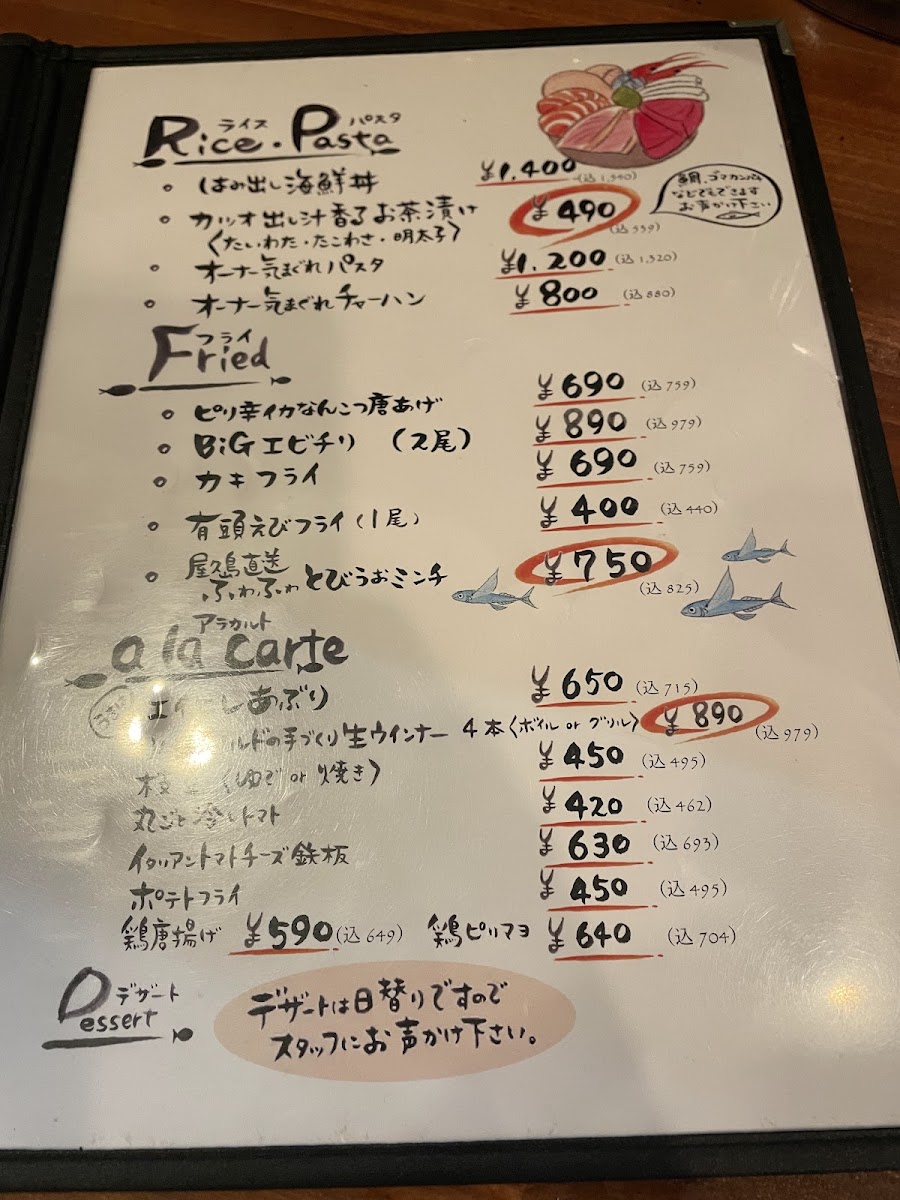 ライス パスタ
Rice・Pasta
はみ出し海鮮丼 ¥1,400 (込1,540)
カツオ出し汁香るお茶漬け ¥490 (込539)
〈たいわた・たこわさ・明太子〉
鯛、ゴマカンパチ
などでもできます
お声かけ下さい
オーナー気まぐれパスタ ¥1,200 (込1,320)
オーナー気まぐれチャーハン ¥800 (込880)
フライ
Fried
ピリ辛イカなんこつ唐あげ ¥690 (込759)
BiGエビチリ (2尾) ¥890 (込979)
カキフライ ¥690 (込759)
有頭えびフライ(1尾) ¥400 (込440)
屋久島直送
ふわふわとびうおミンチ ¥750 (込825)
アラカルト
a la carte
あぶり ¥650 (込715)
ルドの手づくり生ウインナー 4本〈ボイル or グリル〉 ¥890 (込979)
(ゆで or 焼き) ¥450 (込495)
丸ごと冷しトマト ¥420 (込462)
イタリアントマトチーズ鉄板 ¥630 (込693)
ポテトフライ ¥450 (込495)
鶏唐揚げ ¥590 (込649) 鶏ピリマヨ ¥640 (込704)
デザート
Dessert
デザートは日替りですので
スタッフにお声かけ下さい。